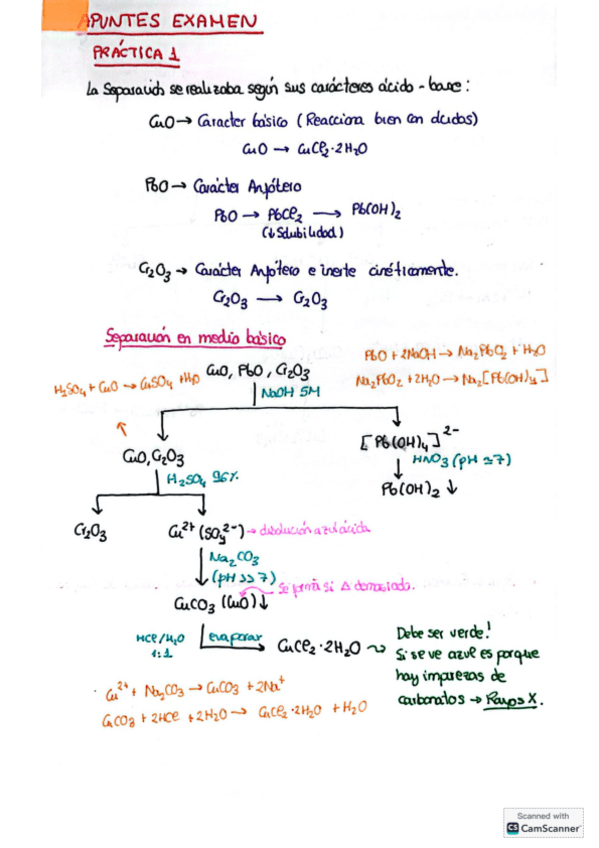 APUNTES EXAMEN
PRÁCTICA 1
La Separación se realizaba según sus carácteres ácido - base:
CuO → Caracter básico (Reacciona bien con ácidos)
CuO → CuCl₂·2H₂O
PbO → Carácter Anfótero
PbO → PbCl₂ → Pb(OH)₂
(↓Solubilidad)
Cr₂O₃ → Carácter Anfótero e inerte cinéticamente.
Cr₂O₃ → Cr₂O₃
Separación en medio básico
PbO + 2NaOH → Na₂PbO₂ + H₂O
H₂SO₄ + CuO → CuSO₄ + H₂O
CuO, PbO, Cr₂O₃
Na₂PbO₂ + 2H₂O → Na₂[Pb(OH)₄]
NaOH 5M
CuO, Cr₂O₃
[Pb(OH)₄]²⁻
H₂SO₄ 96%
HNO₃ (pH ≃ 7)
Pb(OH)₂ ↓
Cr₂O₃
Cu²⁺ (SO₄²⁻) → disolución azul ácida
Na₂CO₃
(pH ≥≥ 7)
Se forma si Δ demasiado.
CuCO₃ (CuO)↓
HCl/H₂O
1:1
evaporar
CuCl₂·2H₂O
Debe ser verde!
Si se ve azul es porque
hay impurezas de
carbonatos → Rayos X.
Cu²⁺ + Na₂CO₃ → CuCO₃ + 2Na⁺
CuCO₃ + 2HCl + 2H₂O → CuCl₂·2H₂O + H₂O
Scanned with
CS CamScanner